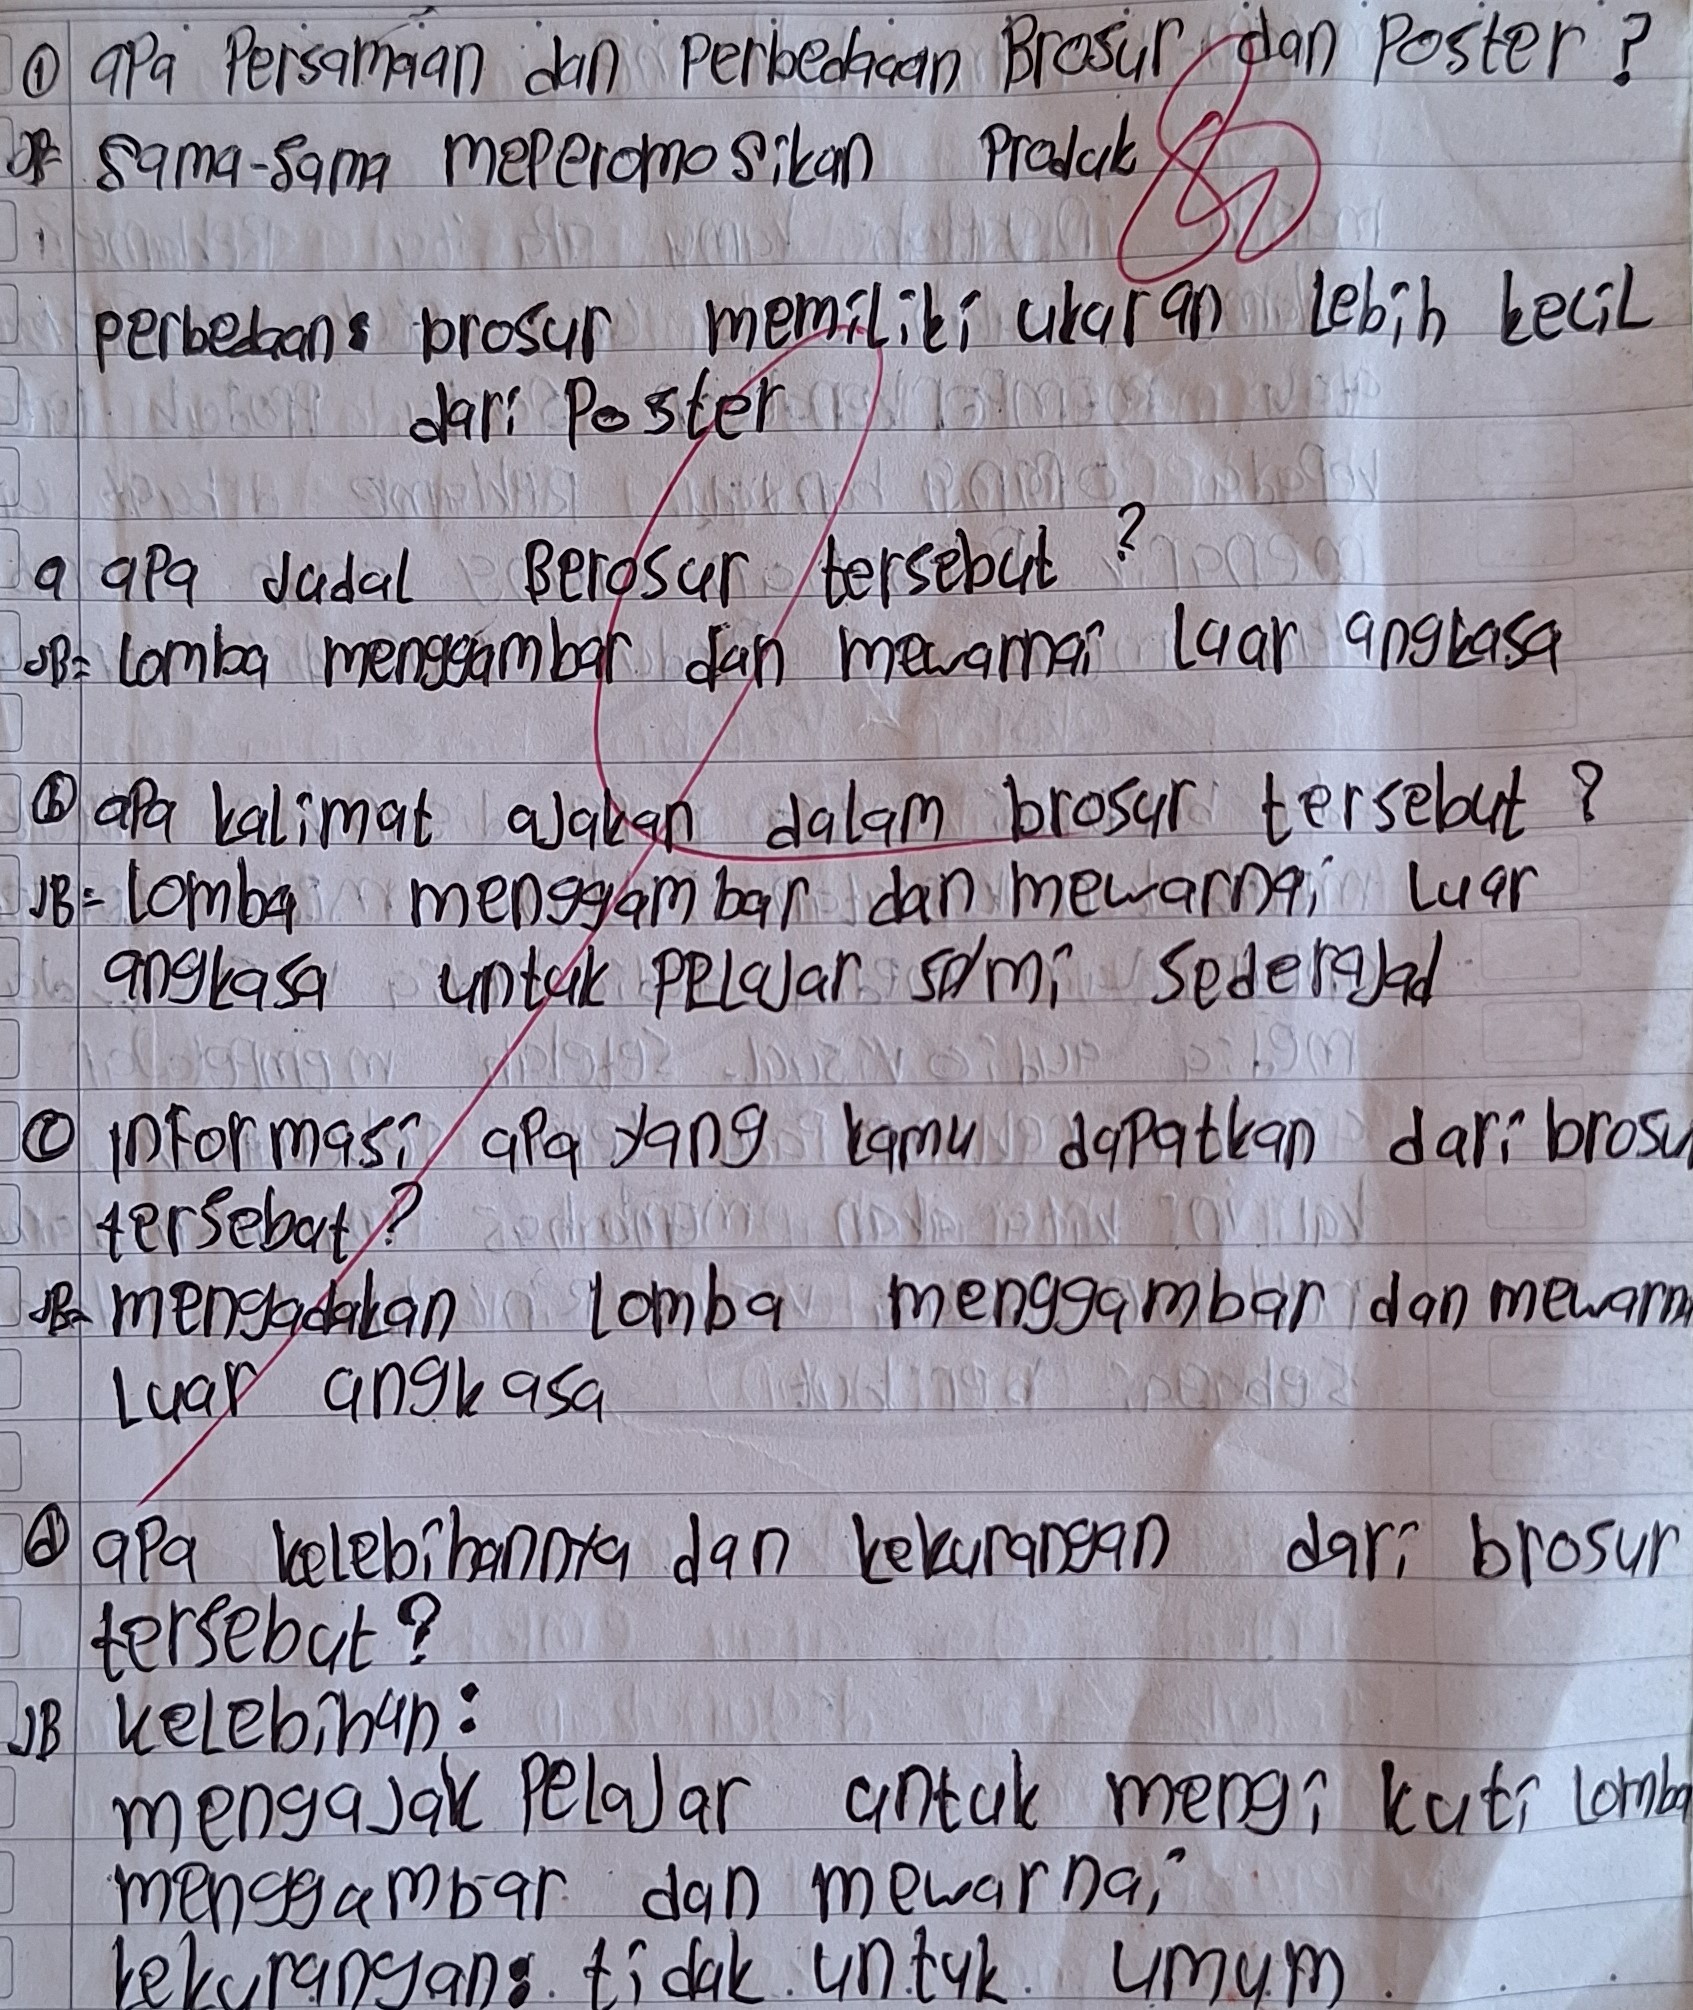 ① apa Persamaan dan Perbedaaan Brosur dan Poster ?
sama-sama meperomosikan Produk
80
perbedaan: brosur memiliki ukuran lebih kecil
dari Poster
a apa Judul Berosur tersebut ?
JB= lomba menggambar dan mewarnai luar angkasa
ⓑ apa kalimat ajakan dalam brosur tersebut ?
JB= lomba menggambar dan mewarnai luar
angkasa untuk pelajar sd/mi sederajad
ⓒ informasi apa yang kamu dapatkan dari brosu
tersebut ?
JB= mengadakan lomba menggambar dan mewarn
Luar angkasa
ⓓ apa kelebihannya dan kekurangan dari brosur
tersebut ?
JB kelebihan :
mengajak Pelajar untuk mengikuti lomba
menggambar dan mewarnai
kekurangan: tidak untuk umum.